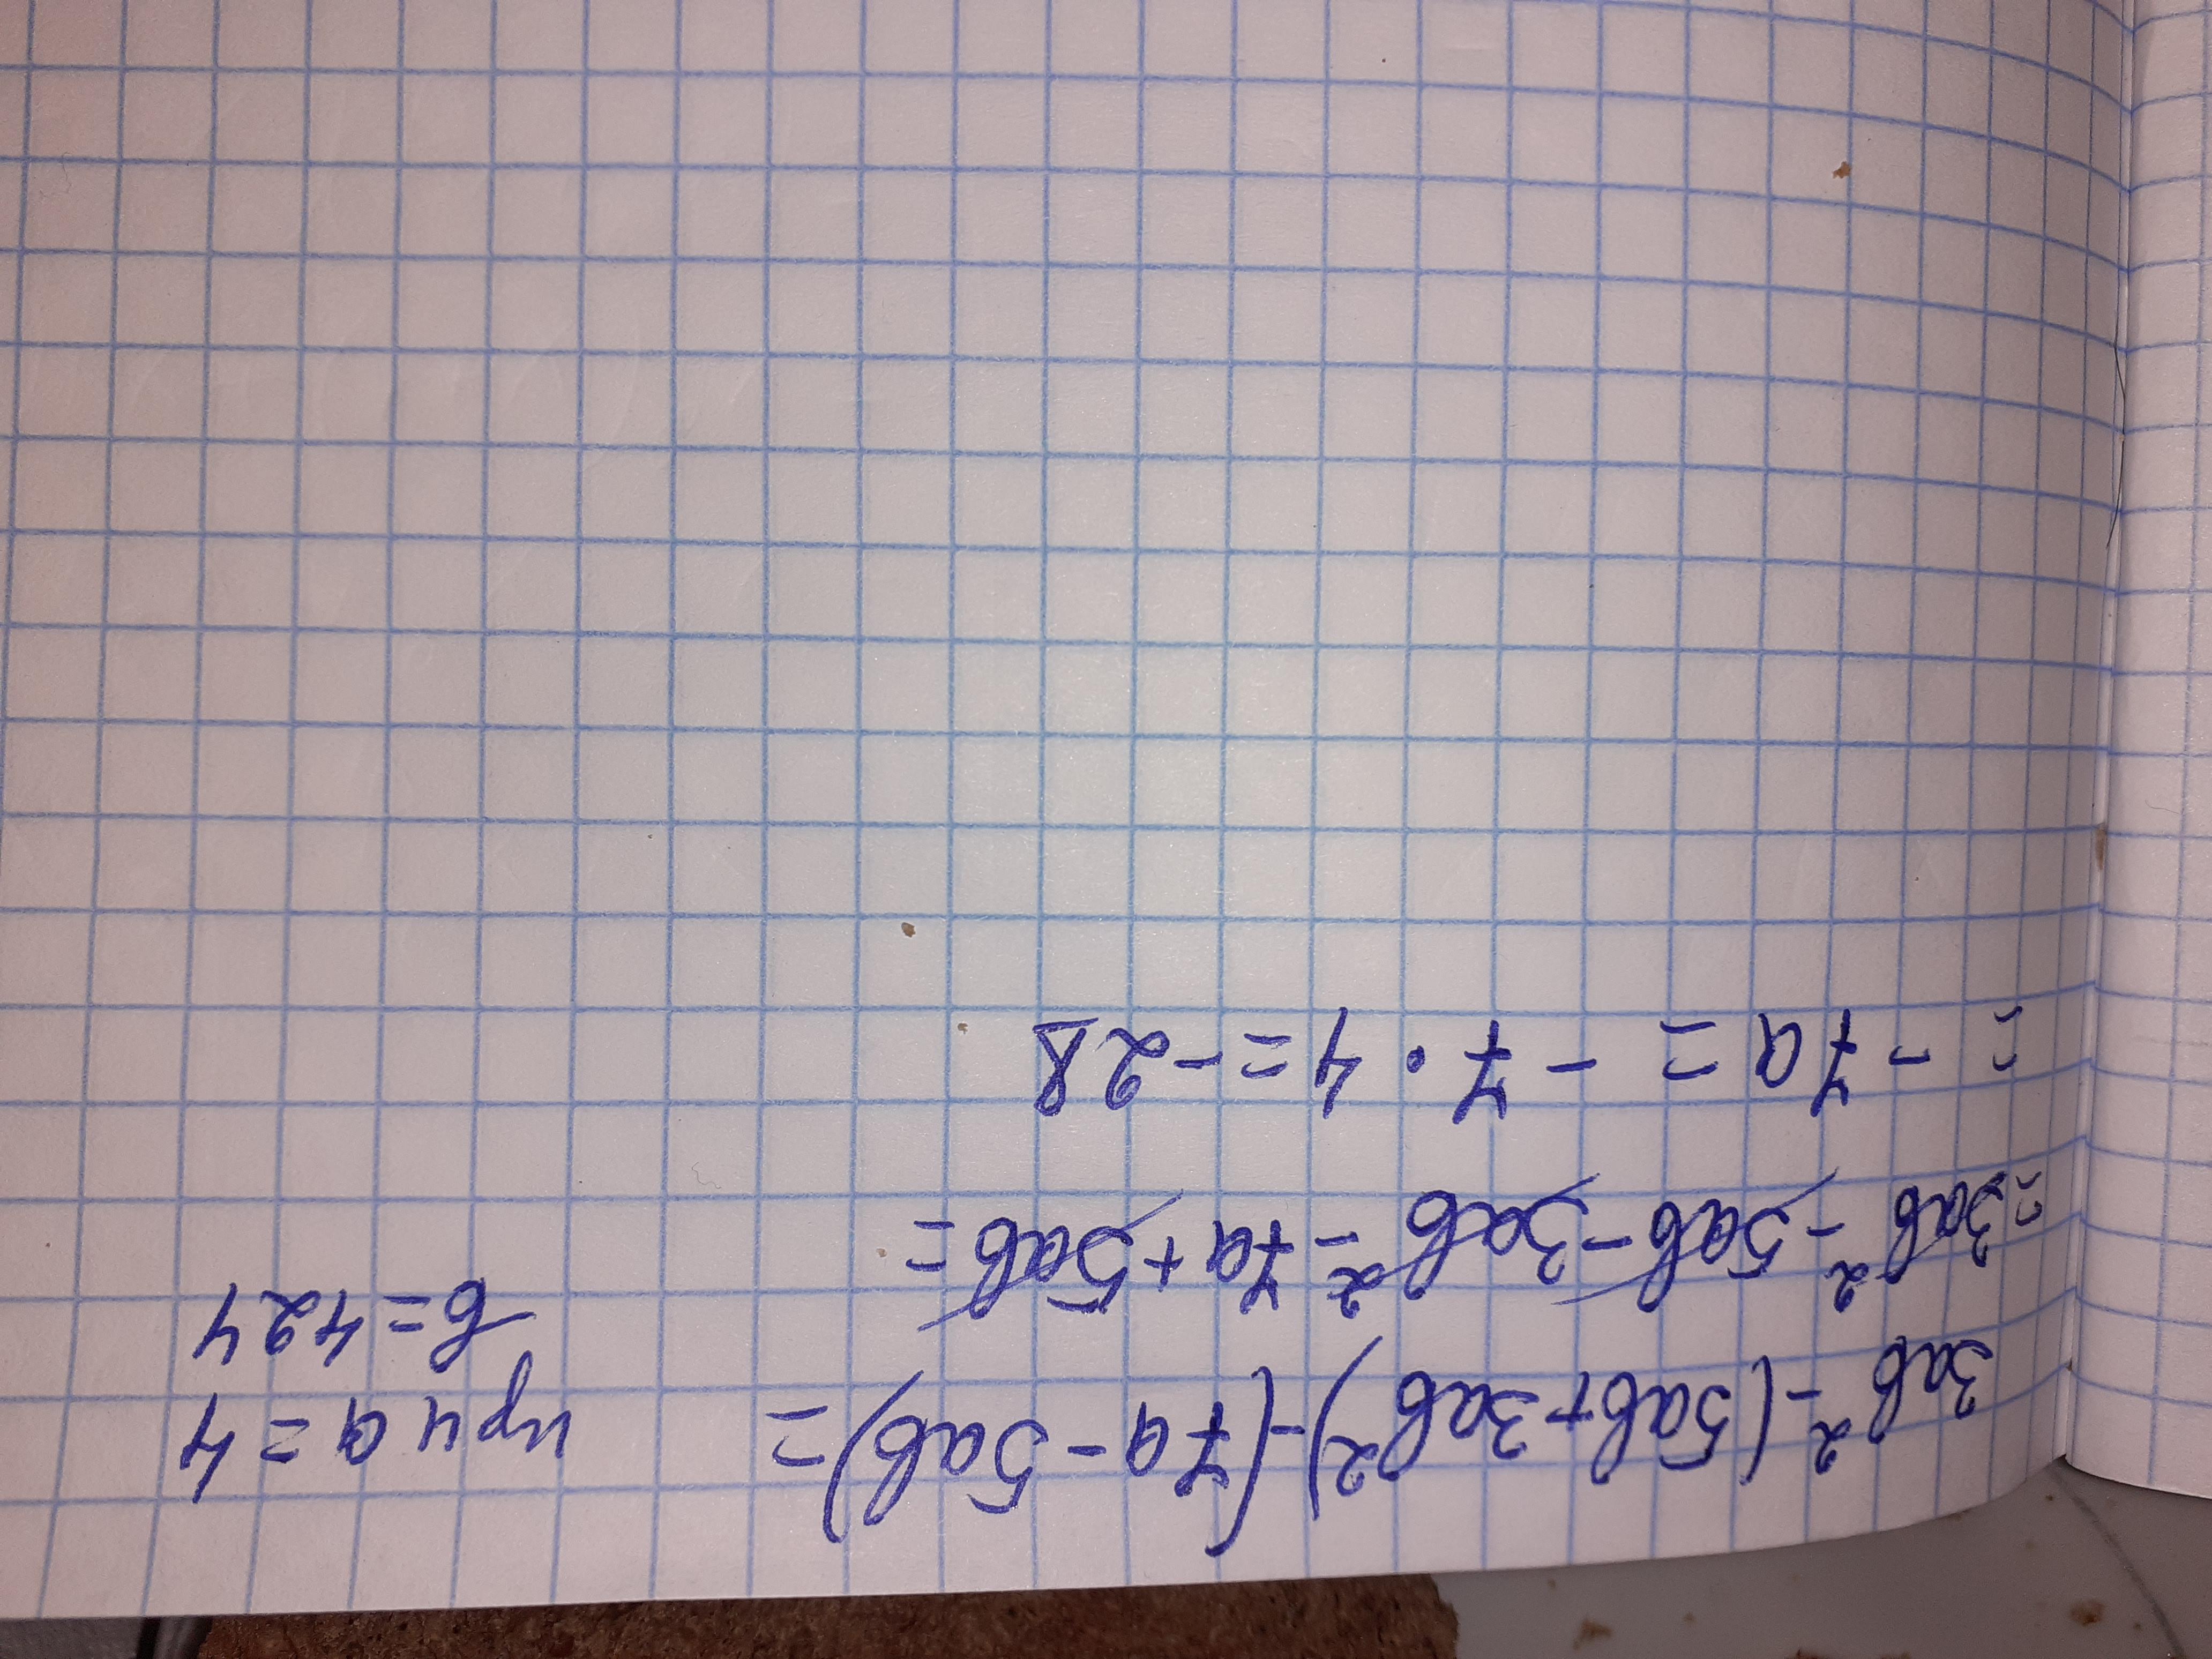 3ab² - (5ab + 3ab²) - (7a - 5ab) = при a = 4
b = 424
= 3ab² - 5ab - 3ab² - 7a + 5ab =
= - 7a = - 7 · 4 = - 28